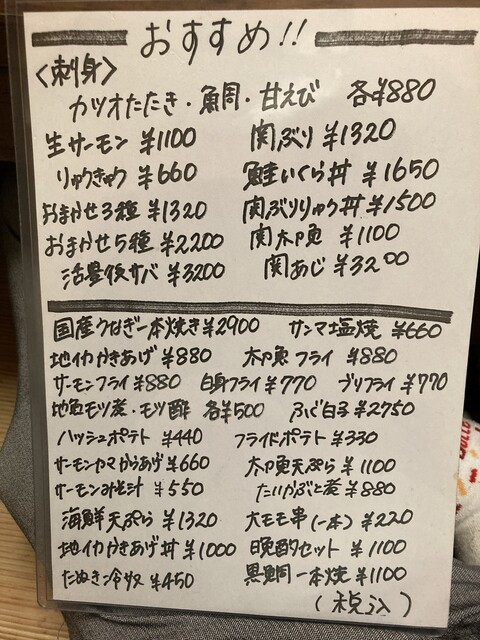 おすすめ!!
<刺身>
カツオたたき・鯛・甘えび 各¥880
生サーモン ¥1100 関ぶり ¥1320
りゅうきゅう ¥660 鮭いくら丼 ¥1650
おまかせ3種 ¥1320 関ぶりりゅう丼 ¥1500
おまかせ5種 ¥2200 関太刀魚 ¥1100
活豊後サバ ¥3200 関あじ ¥3200
国産うなぎ一本焼き ¥2900 サンマ塩焼 ¥660
地イカかきあげ ¥880 太刀魚フライ ¥880
サーモンフライ ¥880 白身フライ ¥770 ブリフライ ¥770
地魚モツ煮・モツ酢 各¥500 ふぐ白子 ¥2750
ハッシュポテト ¥440 フライドポテト ¥330
サーモンカマからあげ ¥660 太刀魚天ぷら ¥1100
サーモンみそ汁 ¥550 たいかぶと煮 ¥880
海鮮天ぷら ¥1320 大モモ串(一本) ¥220
地イカかきあげ丼 ¥1000 晩酌セット ¥1100
たぬき冷奴 ¥450 黒鯛一本焼 ¥1100
(税込)